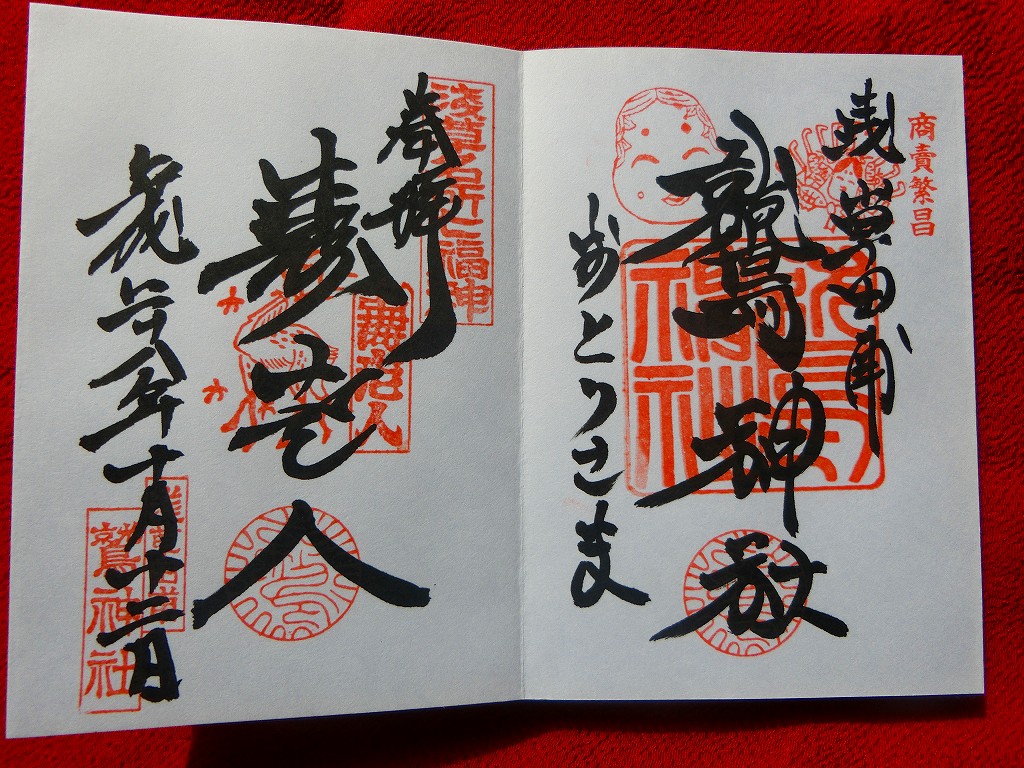 商賣繁昌
浅草田甫
鷲神社
おとりさま
浅草名所七福神
奉拝
壽老人
壽老人
平成廿八年十月十二日
鷲神社